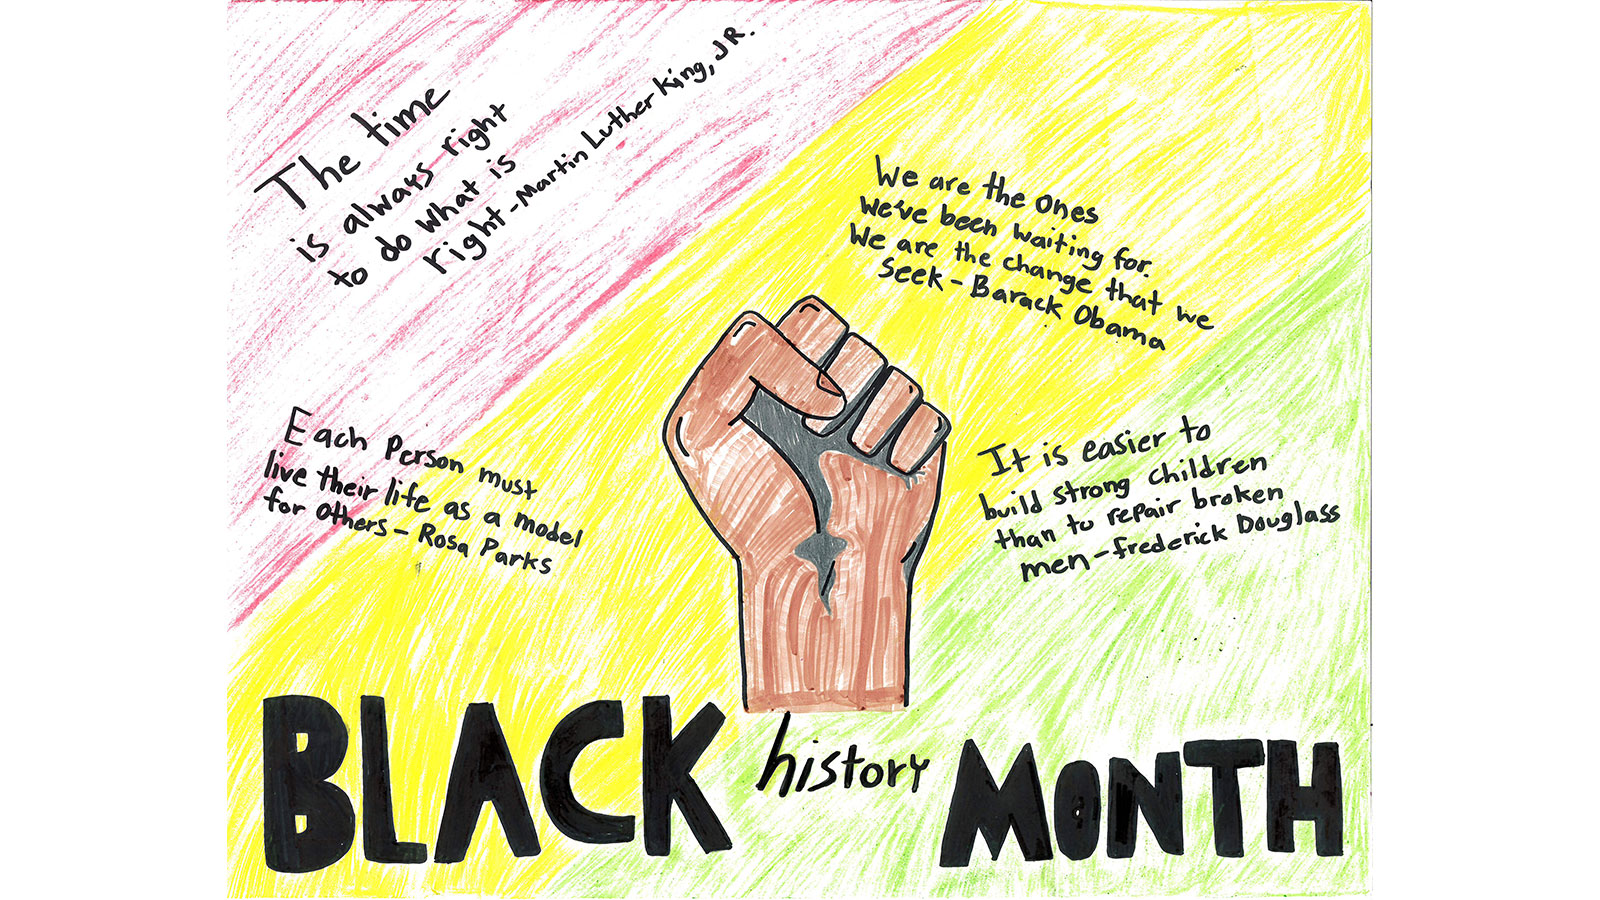 The time
is always right
to do what is
right - Martin Luther King, JR.
We are the ones
we've been waiting for.
We are the change that we
seek - Barack Obama
Each Person must
live their life as a model
for others - Rosa Parks
It is easier to
build strong children
than to repair broken
men - frederick Douglass
BLACK history MONTH